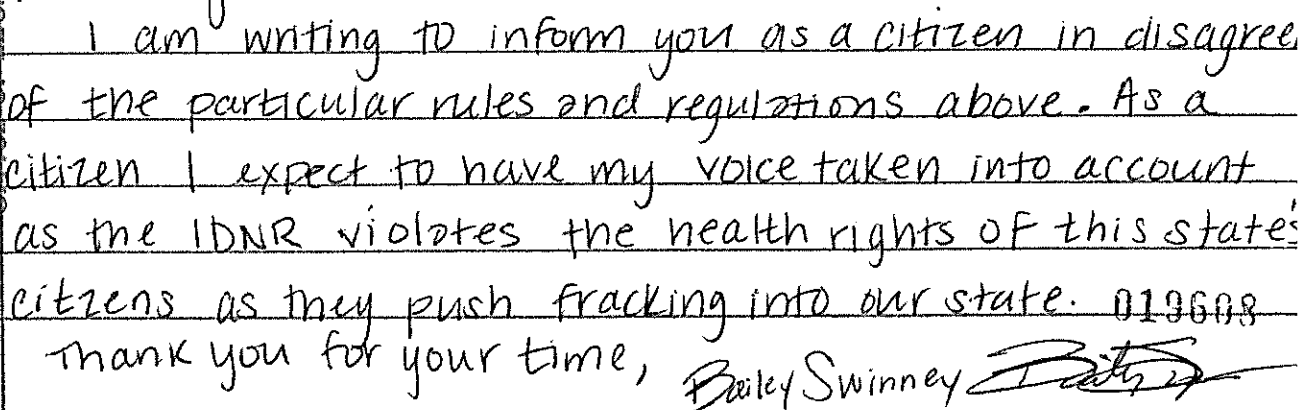 I am writing to inform you as a citizen in disagree
of the particular rules and regulations above. As a
citizen I expect to have my voice taken into account
as the IDNR violates the health rights of this state's
citzens as they push fracking into our state. 019608
Thank you for your time, Bailey Swinney